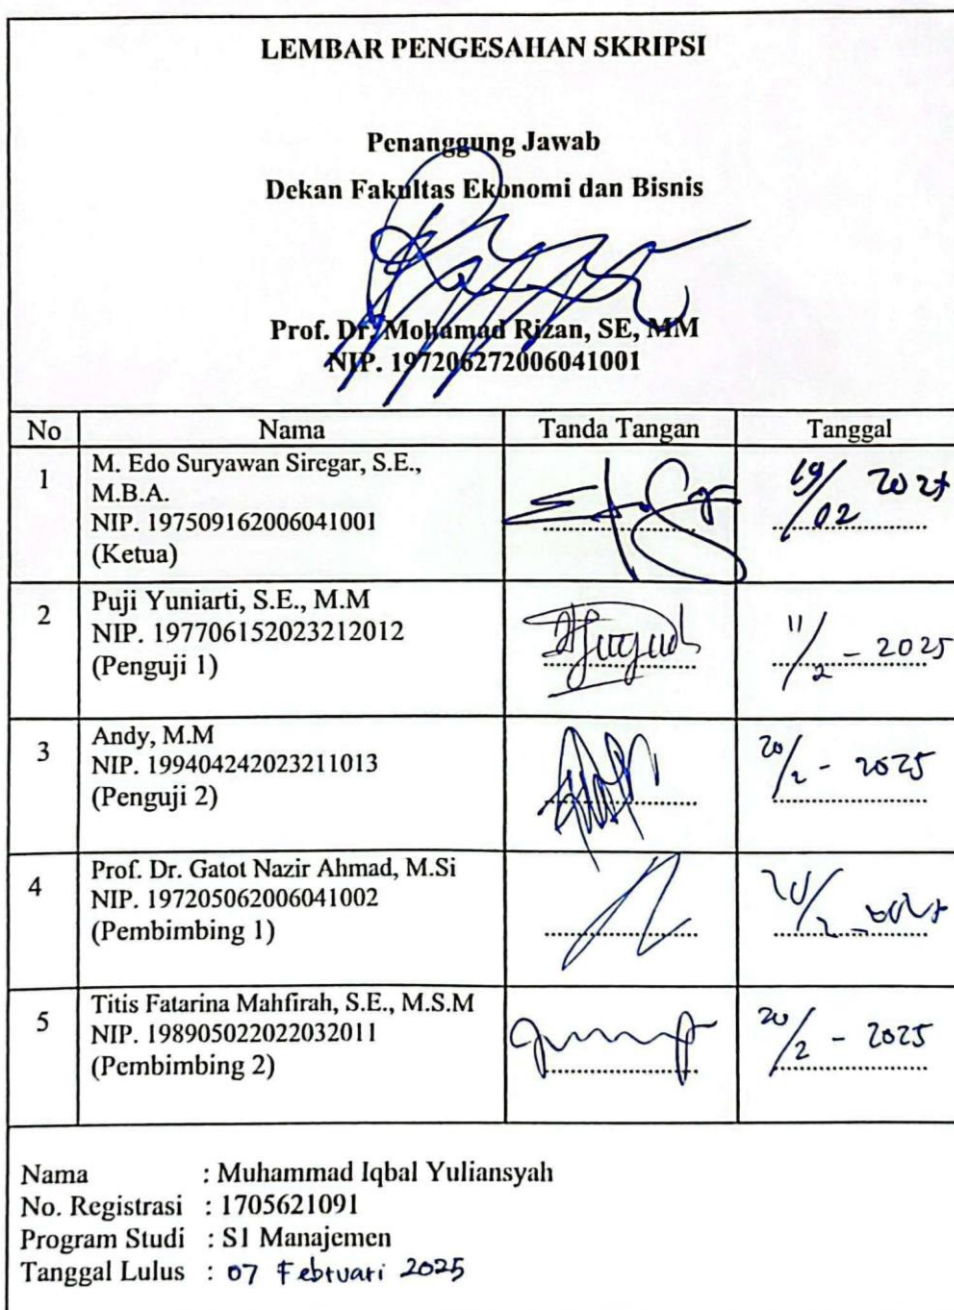 LEMBAR PENGESAHAN SKRIPSI
Penanggung Jawab
Dekan Fakultas Ekonomi dan Bisnis
Prof. Dr. Mohamad Rizan, SE, MM
NIP. 197206272006041001
No Nama Tanda Tangan Tanggal
1 M. Edo Suryawan Siregar, S.E.,
M.B.A.
NIP. 197509162006041001
(Ketua)
19/02 2025
2 Puji Yuniarti, S.E., M.M
NIP. 197706152023212012
(Penguji 1)
11/2 - 2025
3 Andy, M.M
NIP. 199404242023211013
(Penguji 2)
20/2 - 2025
4 Prof. Dr. Gatot Nazir Ahmad, M.Si
NIP. 197205062006041002
(Pembimbing 1)
5 Titis Fatarina Mahfirah, S.E., M.S.M
NIP. 198905022022032011
(Pembimbing 2)
20/2 - 2025
Nama : Muhammad Iqbal Yuliansyah
No. Registrasi : 1705621091
Program Studi : S1 Manajemen
Tanggal Lulus : 07 Februari 2025